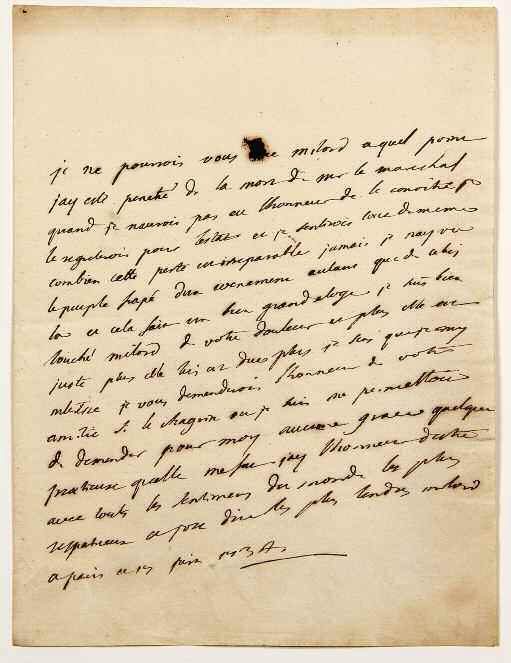 je ne pourrois vous dire milord a quel point
jay esté penetré de la mort de mr le marechal
quand je naurois pas eu lhonneur de le conoitre je
le regreterois pour lestat et je sentirois tout de meme
combien cette perte est irreparable jamais je nay vu
le peuple frapé dun evenement autant que de celuy
la et cela fait un bien grand eloge je suis bien
touché milord de votre douleur et plus elle est
juste plus elle
je vous demanderois lhonneur de votre
amitie si le chagrin ou je suis me permettoit
de demander pour moy aucune grace quelque
pretieuse quelle me fut jay lhonneur detre
avec touts les sentimens du monde les plus
respectueux et jose dire les plus tendres milord
a paris ce juin 1734